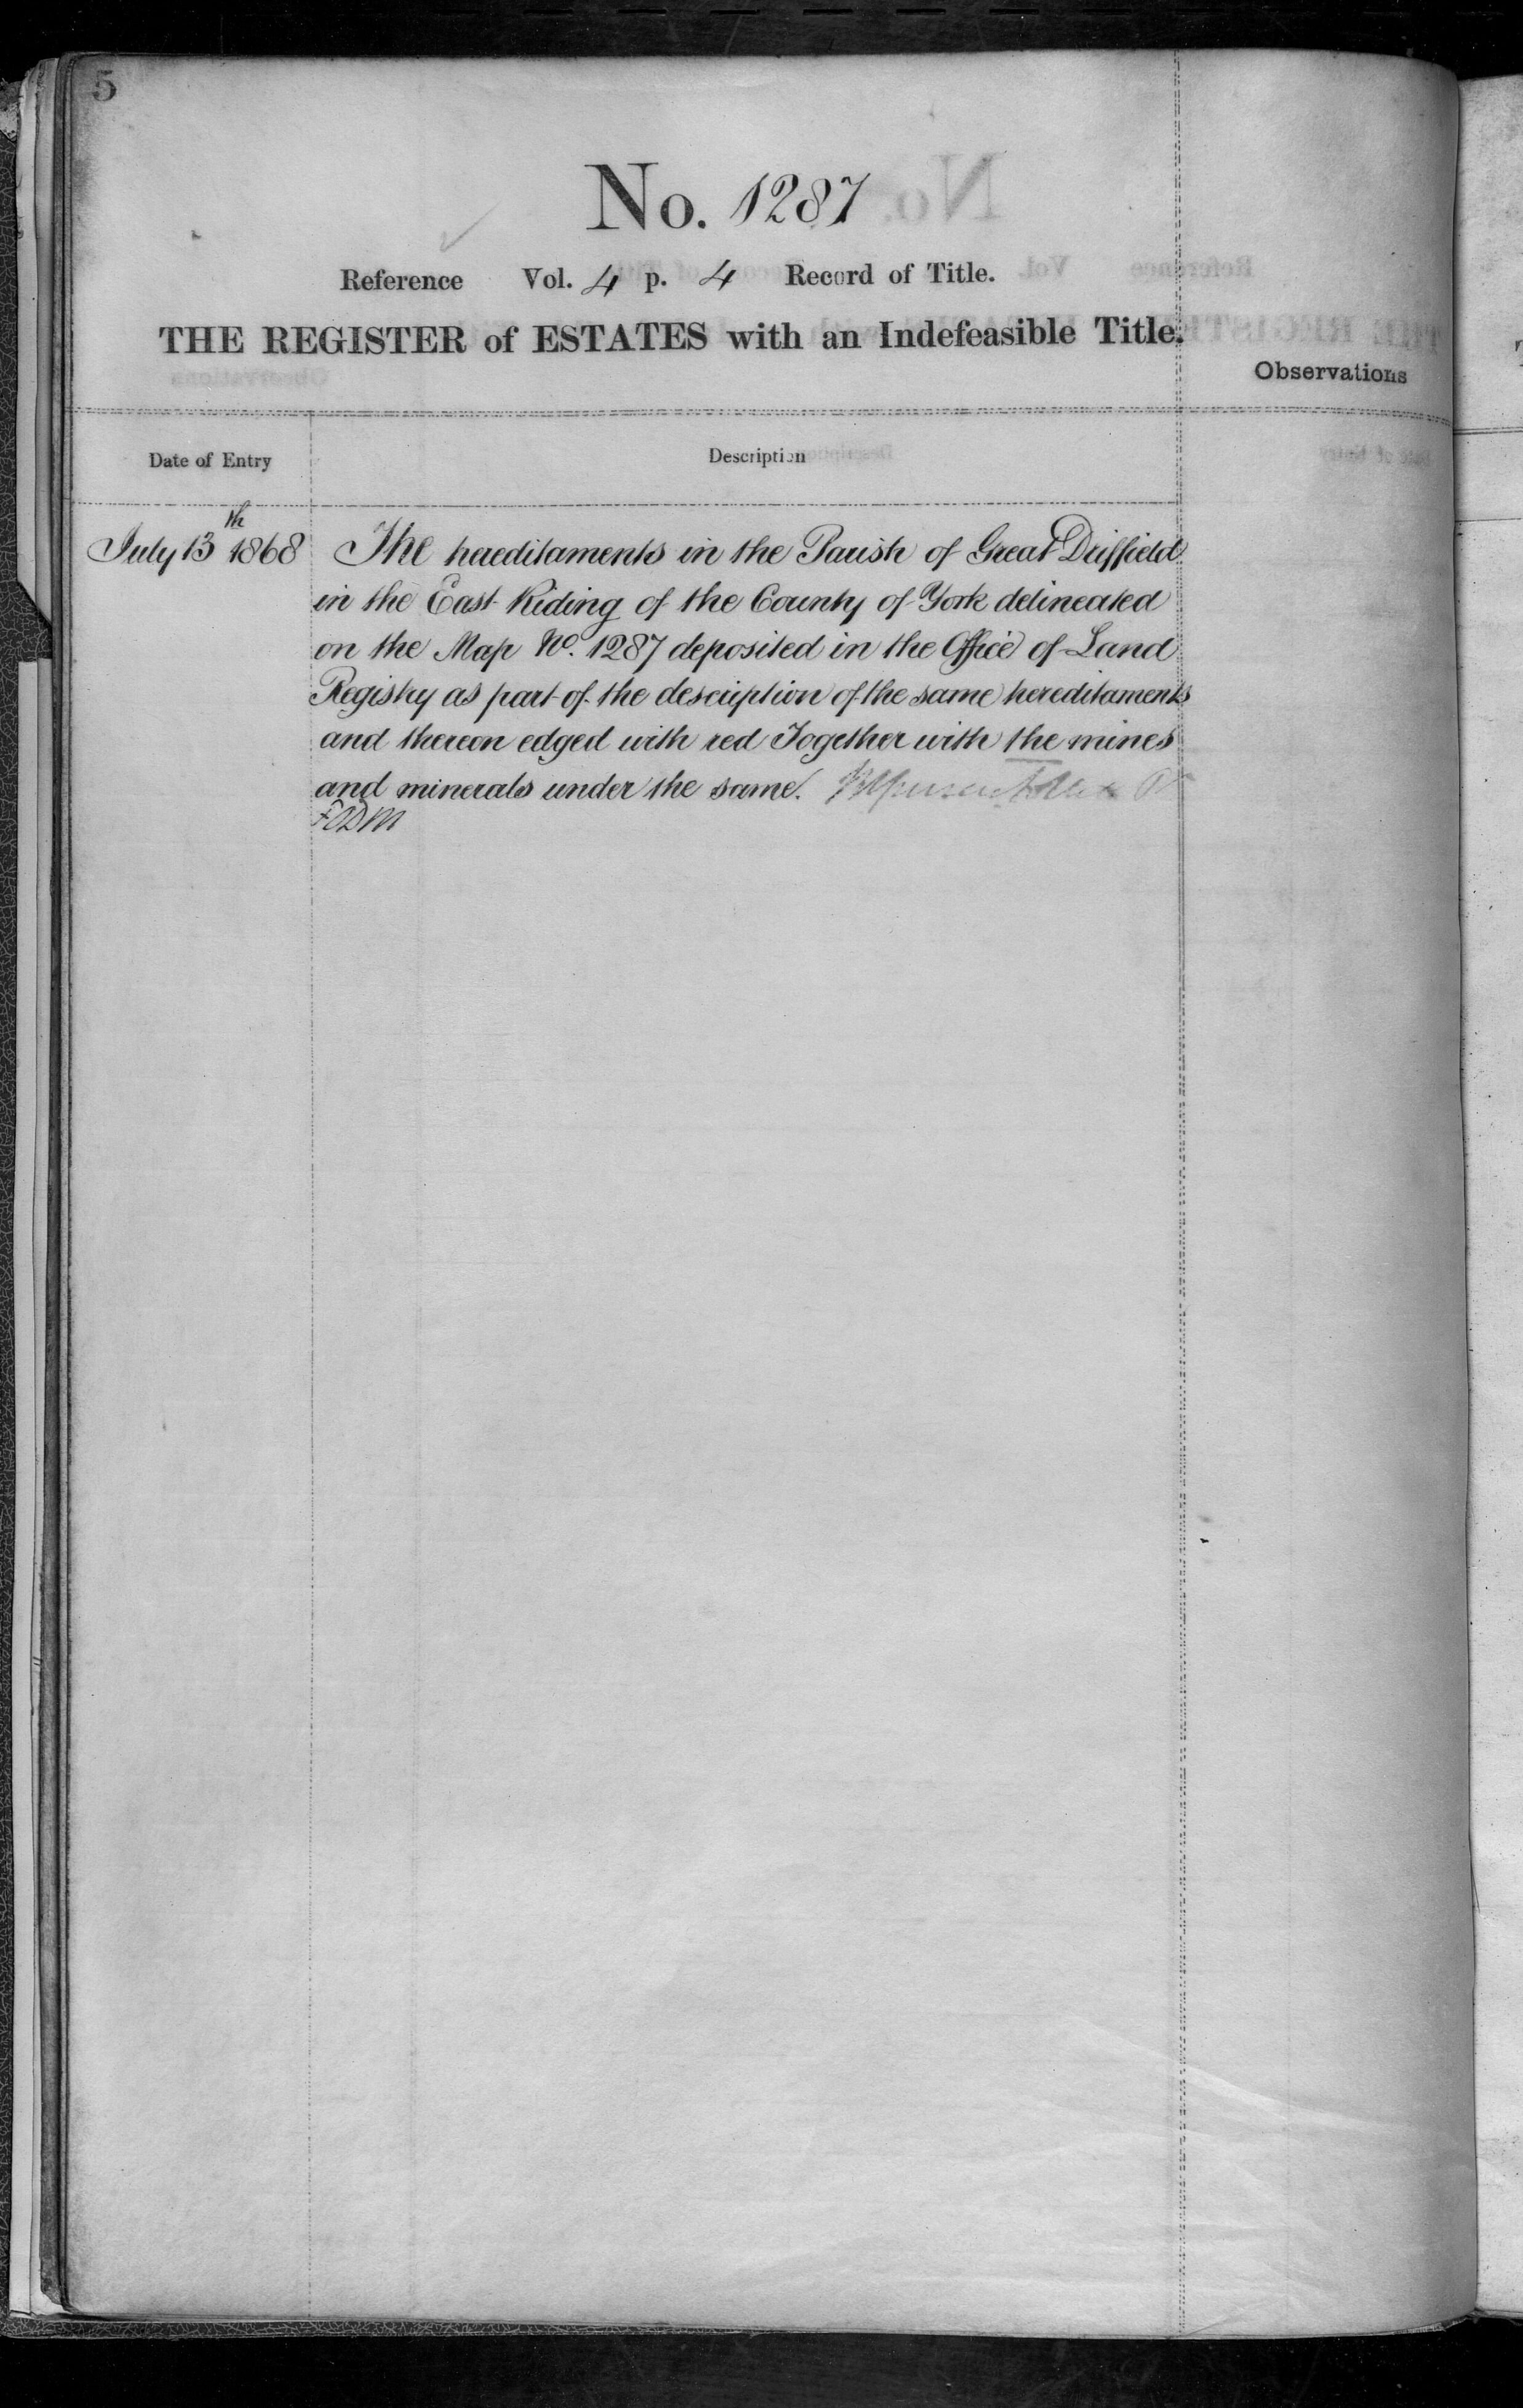 5
No. 1287
Reference Vol. 4 p. 4 Record of Title.
THE REGISTER of ESTATES with an Indefeasible Title.
Observations
Date of Entry
Description
July 13th 1868
The hereditaments in the Parish of Great Driffield
in the East Riding of the County of York delineated
on the Map No. 1287 deposited in the Office of Land
Registry as part of the description of the same hereditaments
and thereon edged with red Together with the mines
and minerals under the same.